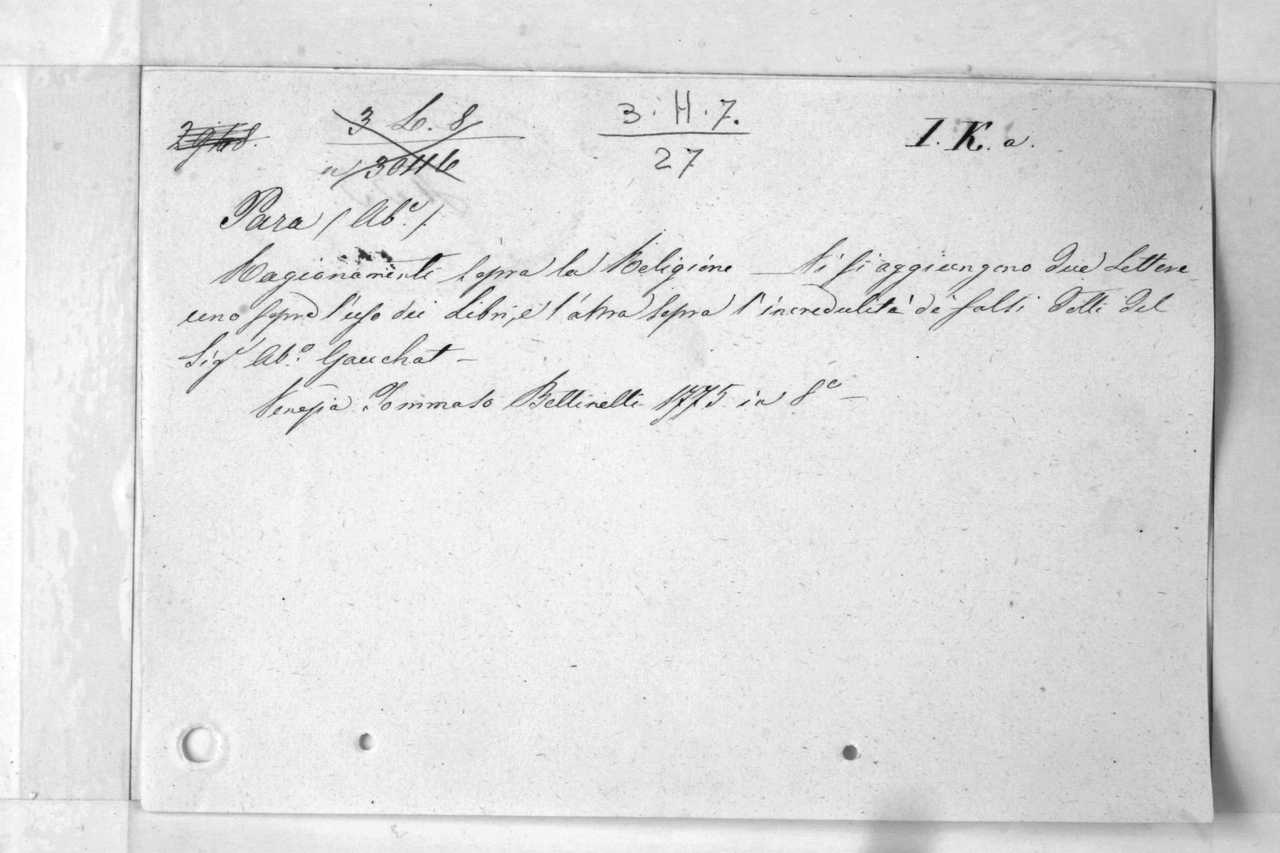 3 L. 8
3046
3. H. 7.
27
I. K. a.
Para (Ab.e).
Ragionamenti sopra la Religione — Vi si aggiungono due Lettere
uno sopra l'uso dei Libri, e l'altra sopra l'incredulità de' falsi Dotti del
Sig.r Ab.e Gauchat —
Venezia Tommaso Bettinelli 1775 in 8.o —